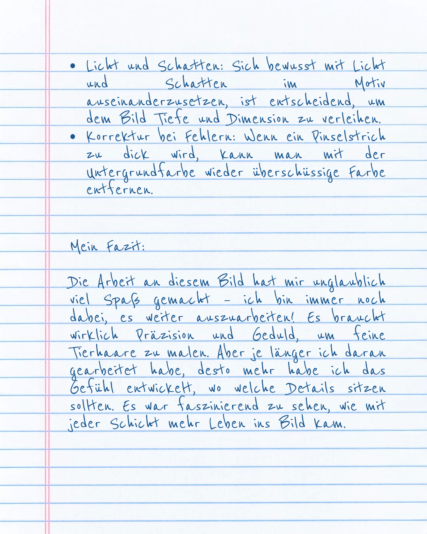 • Licht und Schatten: Sich bewusst mit Licht
und Schatten im Motiv
auseinanderzusetzen, ist entscheidend, um
dem Bild Tiefe und Dimension zu verleihen.
• Korrektur bei Fehlern: Wenn ein Pinselstrich
zu dick wird, kann man mit der
Untergrundfarbe wieder überschüssige Farbe
entfernen.
Mein Fazit:
Die Arbeit an diesem Bild hat mir unglaublich
viel Spaß gemacht – ich bin immer noch
dabei, es weiter auszuarbeiten! Es braucht
wirklich Präzision und Geduld, um feine
Tierhaare zu malen. Aber je länger ich daran
gearbeitet habe, desto mehr habe ich das
Gefühl entwickelt, wo welche Details sitzen
sollten. Es war faszinierend zu sehen, wie mit
jeder Schicht mehr Leben ins Bild kam.